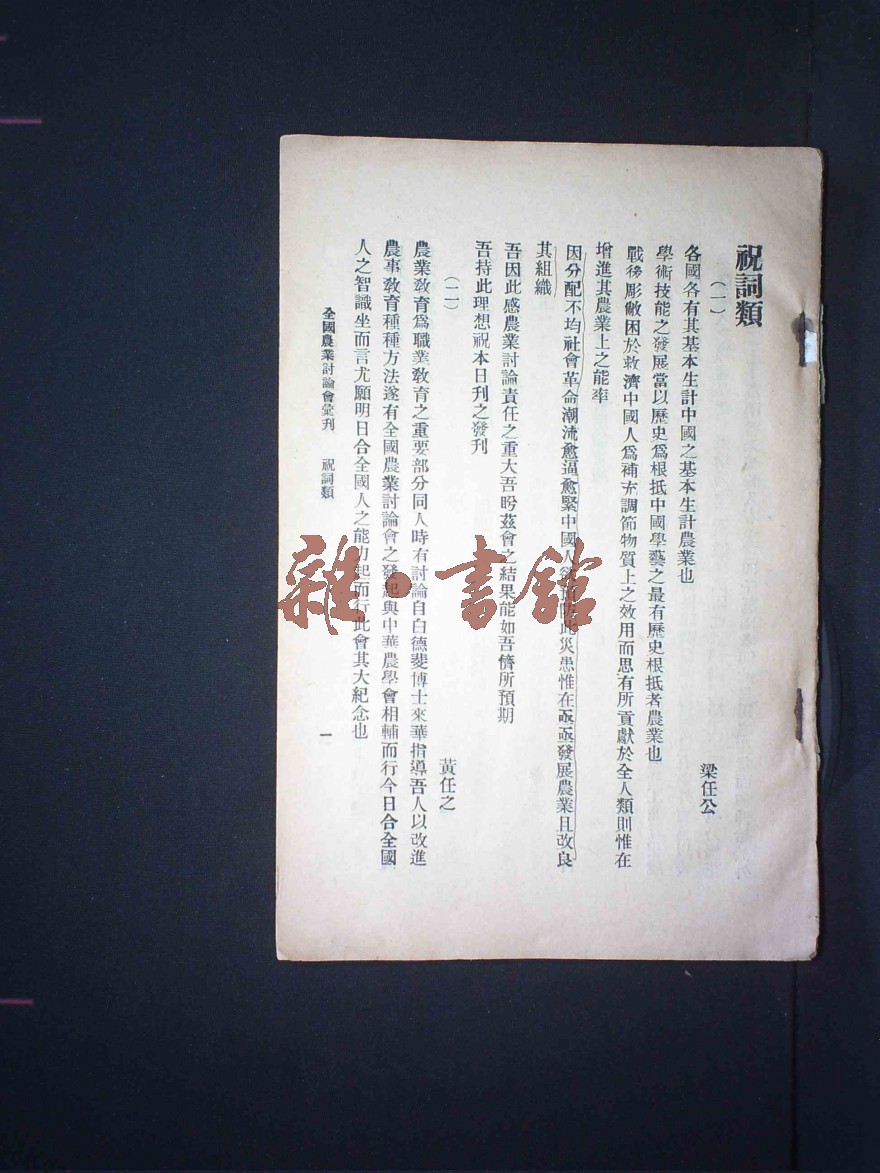 祝詞類
(一)
梁任公
各國各有其基本生計中國之基本生計農業也
學術技能之發展當以歷史爲根抵中國學藝之最有歷史根抵者農業也
戰後彫敝困於救濟中國人爲補充調節物質上之效用而思有所貢獻於全人類則惟在
增進其農業上之能率
因分配不均社會革命潮流愈逼愈緊中國人欲預防此災患惟在亟亟發展農業且改良
其組織
吾因此感農業討論責任之重大吾盻茲會之結果能如吾儕所預期
吾持此理想祝本日刊之發刊
(二)
黃任之
農業敎育爲職業敎育之重要部分同人時有討論自白德斐博士來華指導吾人以改進
農事敎育種種方法遂有全國農業討論會之發起與中華農學會相輔而行今日合全國
人之智識坐而言尤願明日合全國人之能力起而行此會其大紀念也
全國農業討論會彙刊 祝詞類
一
雜·書館